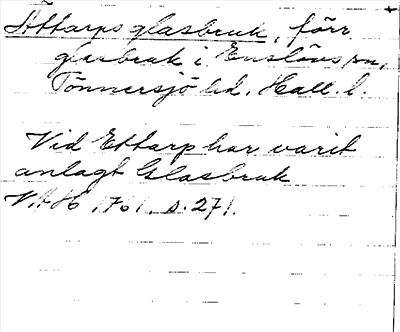 Ättarps glasbruk, förr
glasbruk i Enslövs sn,
Tönnersjö hd. Hall. l.
Vid Ettarp har varit
anlagt Glasbruk
VAH 1761, s. 271.